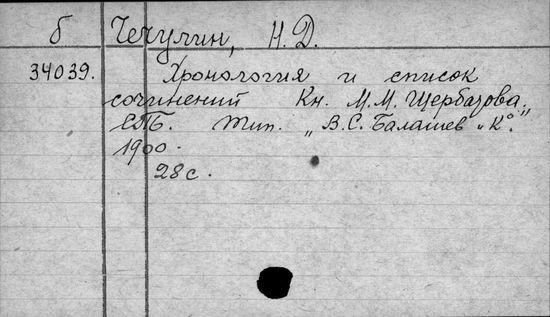 б Чечулин, Н.Д.
34039. Хронология и список
сочинений Кн. М.М. Щербазова.
СПБ. Тип. „В.С. Балашев и К°."
1900.
28с.